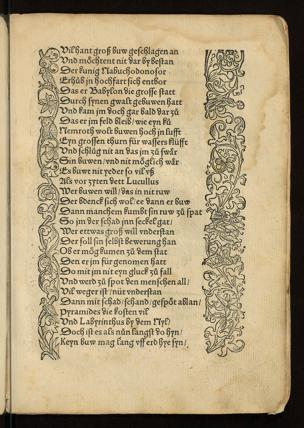 Vil hant groß buw geschlagen an
Vnd möchtent nit dar by bestan
Der künig Nabuchodonosor
Erhůb in hochfart sich entbor
Das er Babylon die grosse statt
Durch synen gwalt gebuwen hatt
Vnd kam jm doch gar bald dar zů
Das er im feld bleib / wie eyn ků
Nemroth wolt buwen hoch in lufft
Eyn grossen thurn für wassers klufft
Vnd schlůg nit an das jm zů swär
Sin buwen / vnd nit möglich wär
Es buwt nit yeder so vil vß
Als vor zyten dett Lucullus
Wer buwen will / das in nit ruw
Der bdenck sich wol / ee dann er buw
Dann manchem kumbt sin ruw zů spat
So jm der schad jnn seckel gat /
Wer ettwas groß will vnderstan
Der soll sin selbst bewerung han
Ob er mög kumen zů dem stat
Den er jm für genomen hatt
Do mit jm nit eyn glück zů fall
Vnd werd zů spot den menschen all /
Vil weger ist / nüt vnderstan
Dann mit schad / schand / gespöt ablan /
Pyramides die kosten vil
Vnd Labyrinthus by dem Nyl /
Doch ist es als nůn langst do hyn /
Keyn buw mag lang vff erd hye syn /